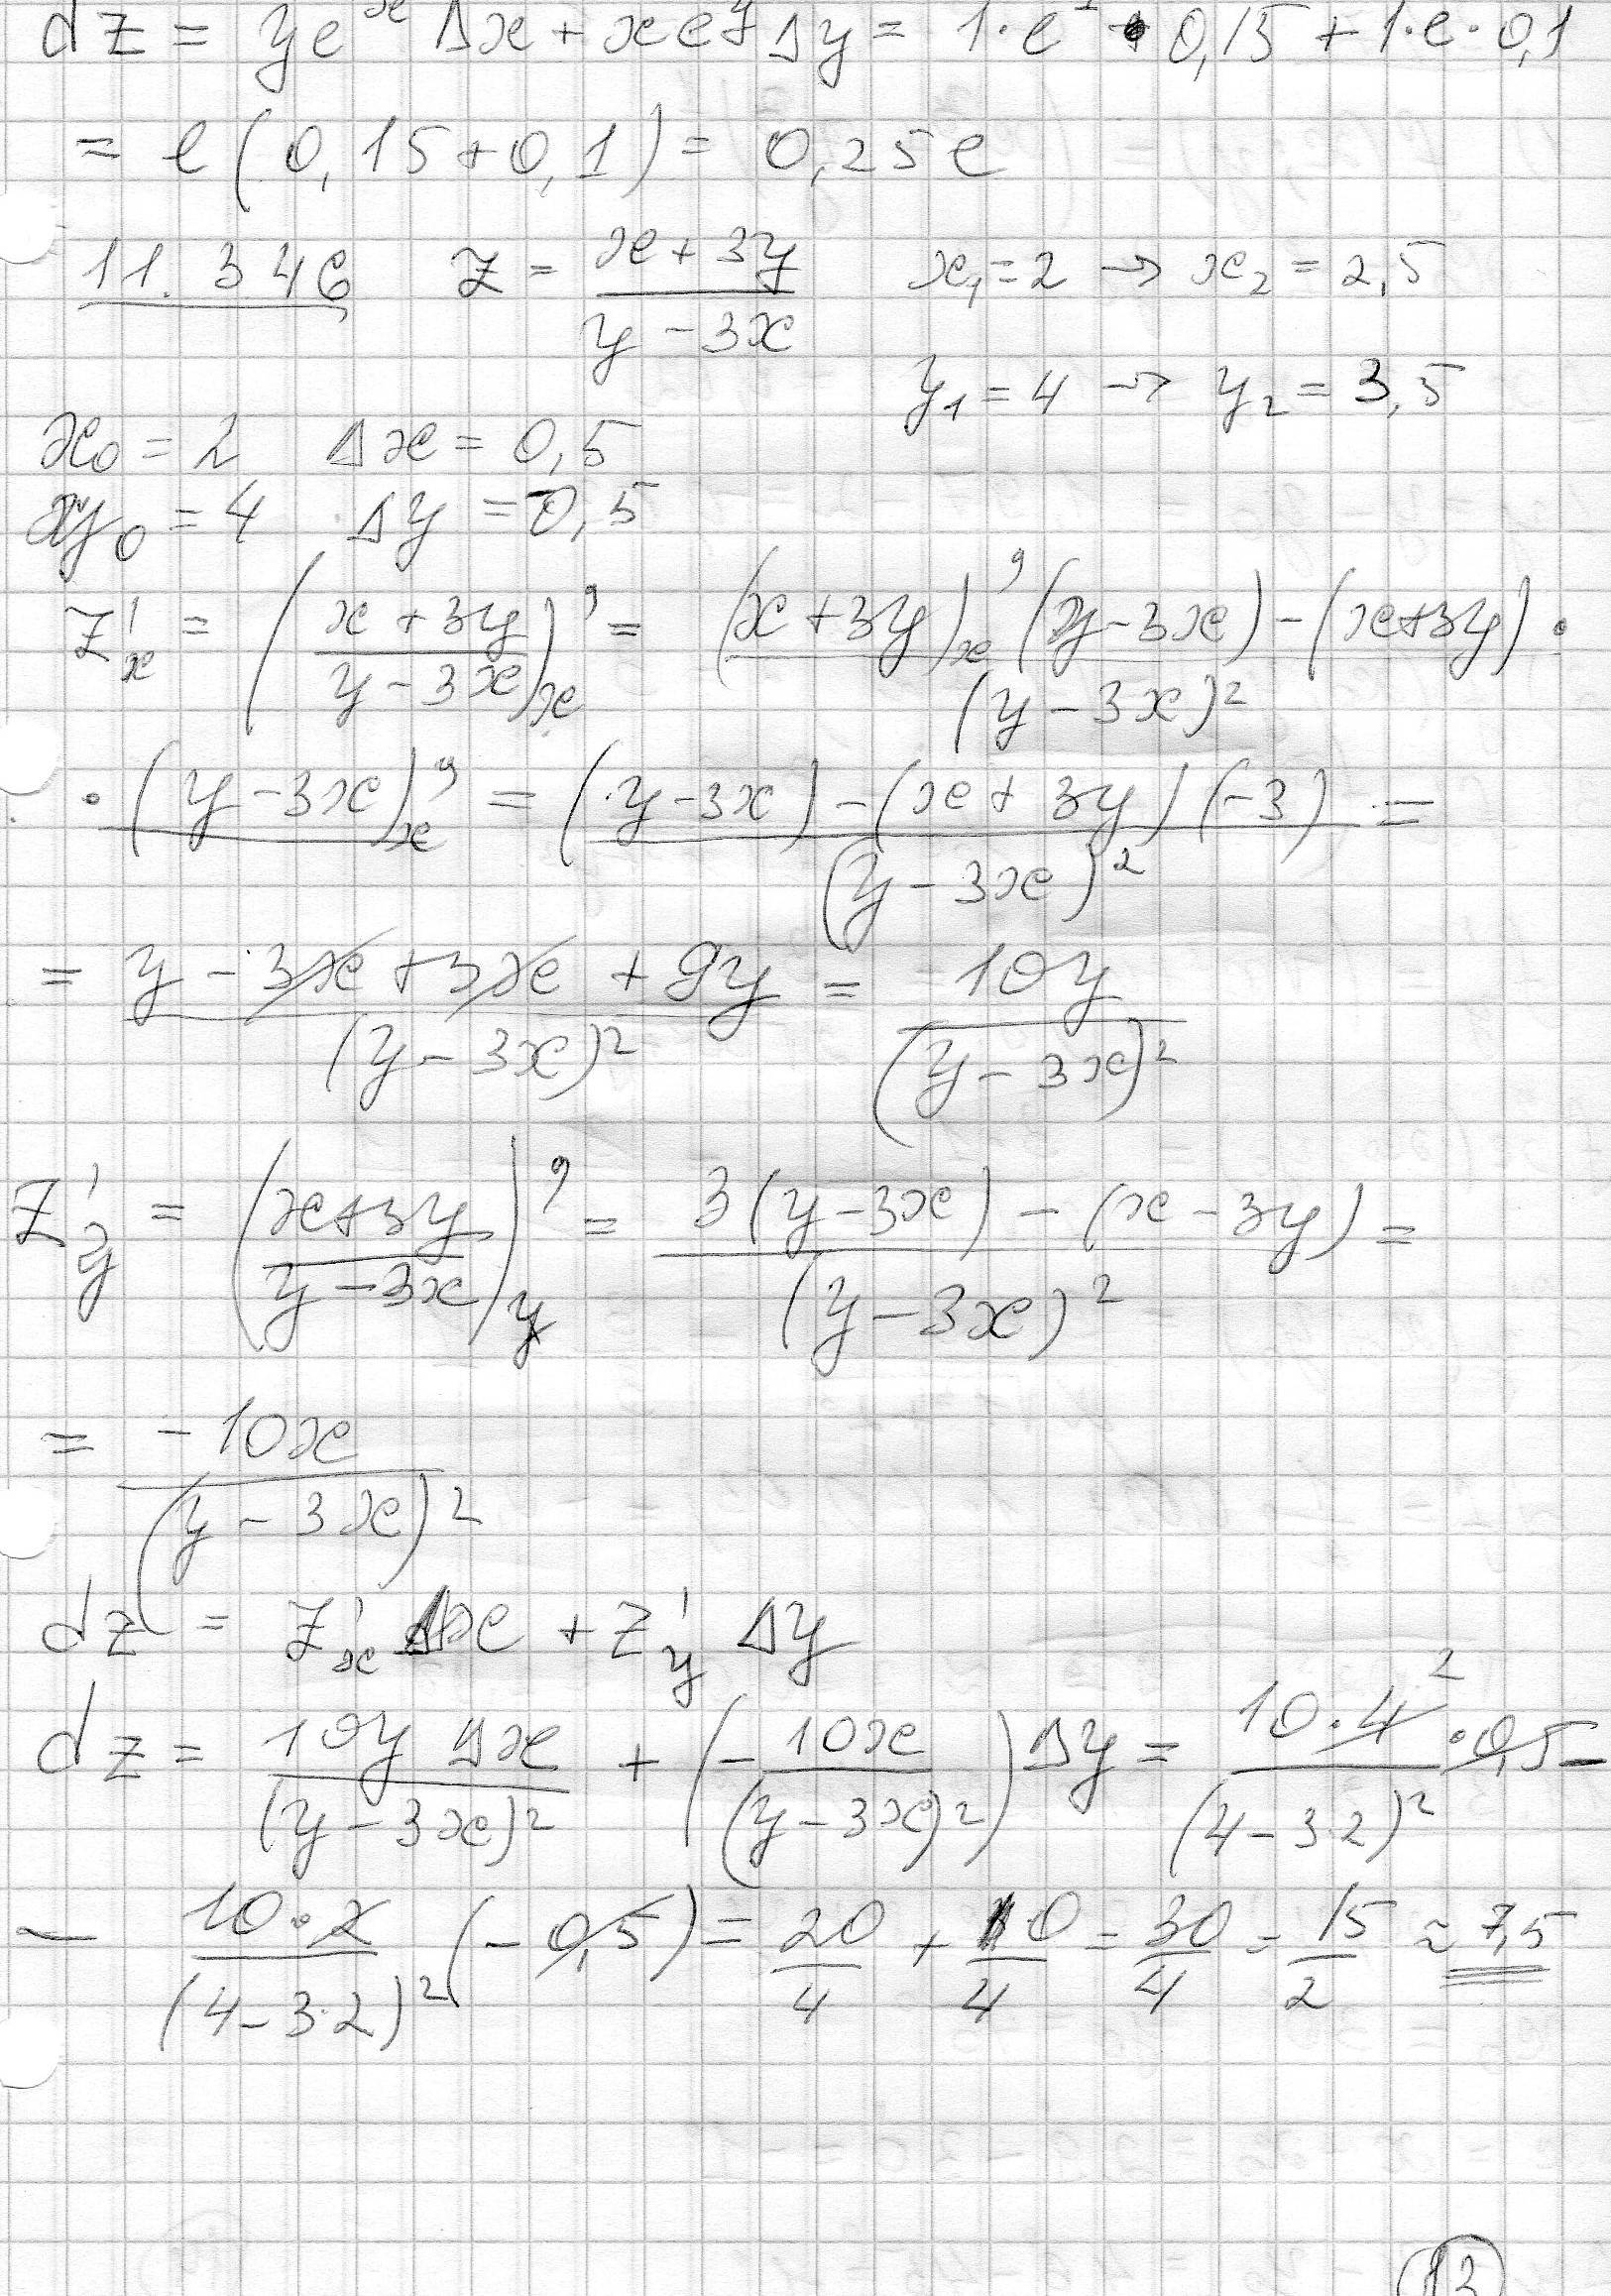 dz = ye^x Δx + xe^y Δy = 1·e^1 · 0,15 + 1·e·0,1
= e(0,15+0,1) = 0,25e
11.346 z = (x+3y)/(y-3x) x₁=2 → x₂=2,5
y₁=4 → y₂=3,5
x₀=2 Δx=0,5
y₀=4 Δy=-0,5
z'ₓ = ((x+3y)/(y-3x))'ₓ = ((x+3y)'ₓ(y-3x)-(x+3y)·
·(y-3x)'ₓ)/(y-3x)² = ((y-3x)-(x+3y)(-3))/(y-3x)² =
= (y-3x+3x+9y)/(y-3x)² = 10y/(y-3x)²
z'_y = ((x+3y)/(y-3x))'_y = (3(y-3x)-(x-3y))/(y-3x)² =
= -10x/(y-3x)²
dz = z'ₓ Δx + z'_y Δy
dz = 10y Δx/(y-3x)² + (-10x/(y-3x)²)Δy = 10·4²/(4-3·2)² ·0,5-
- 10·2/(4-3·2)² (-0,5) = 20/4 + 10/4 = 30/4 = 15/2 ≈ 7,5
12